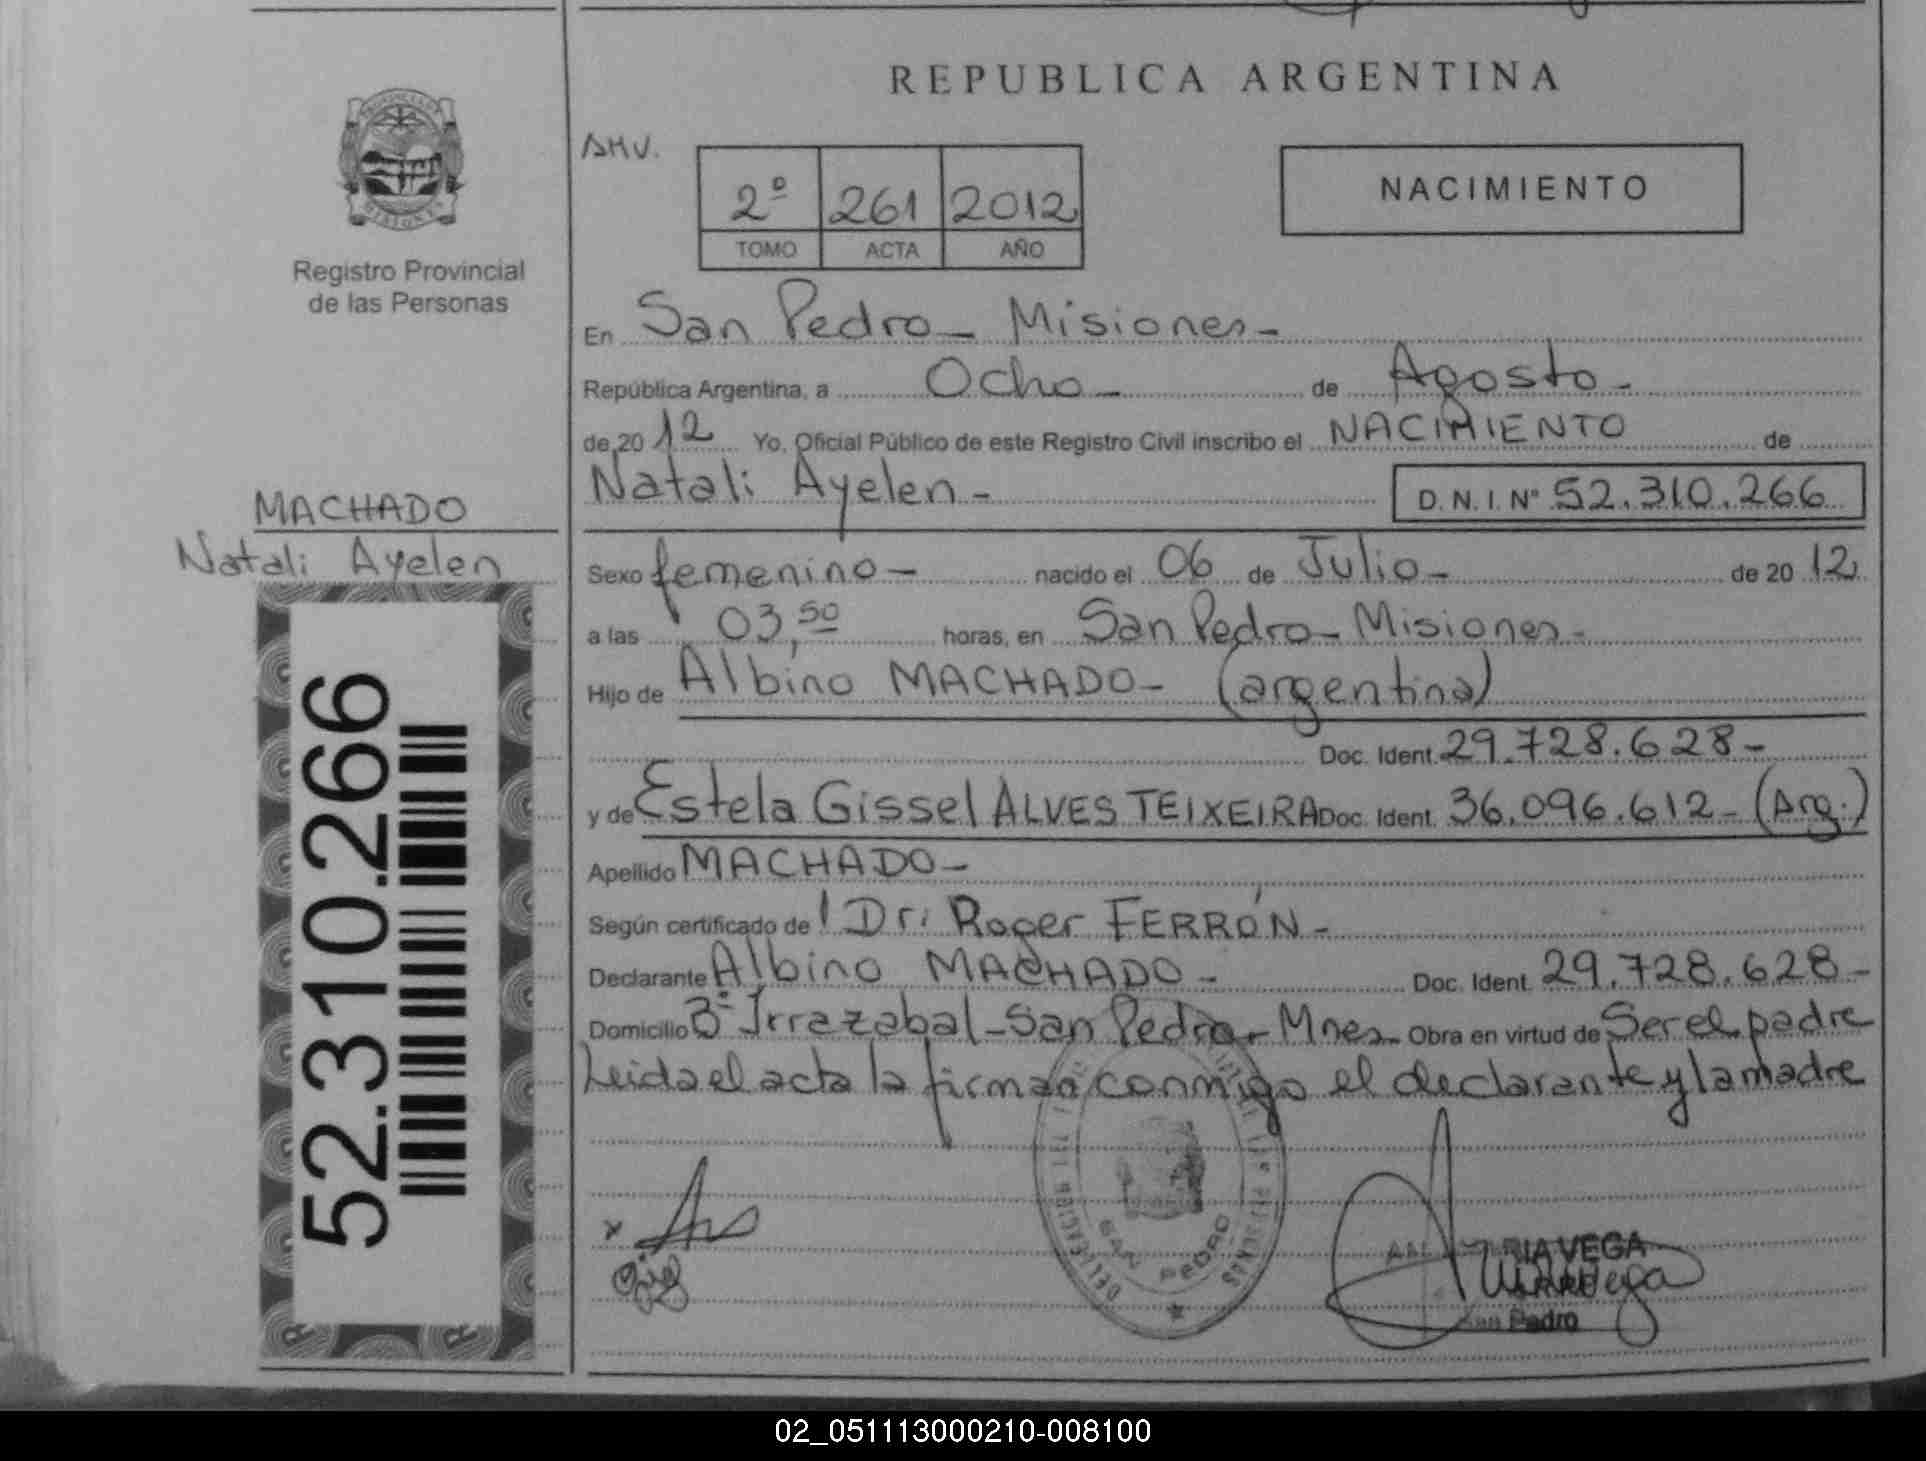 REPUBLICA ARGENTINA
AMV.
2º 261 2012
TOMO ACTA AÑO
NACIMIENTO
PROVINCIA DE MISIONES
Registro Provincial
de las Personas
En San Pedro - Misiones -
República Argentina, a Ocho - de Agosto -
de 20 12 Yo, Oficial Público de este Registro Civil inscribo el NACIMIENTO de
Natali Ayelen - D.N.I. Nº 52.310.266
MACHADO
Natali Ayelen
52.310.266
Sexo femenino - nacido el 06 de Julio - de 20 12
a las 03,50 horas, en San Pedro - Misiones -
Hijo de Albino MACHADO - (argentina)
Doc. Ident. 29.728.628 -
y de Estela Gissel ALVES TEIXEIRA Doc. Ident. 36.096.612 - (Arg.)
Apellido MACHADO -
Según certificado de Dr: Roger FERRÓN -
Declarante Albino MACHADO - Doc. Ident. 29.728.628 -
Domicilio Bº Irrazabal - San Pedro - Mnes - Obra en virtud de Ser el padre
Leida el acta la firman conmigo el declarante y la madre
DELEGACION
PERSONAS
SAN PEDRO
VEGA
San Pedro
02_051113000210-008100